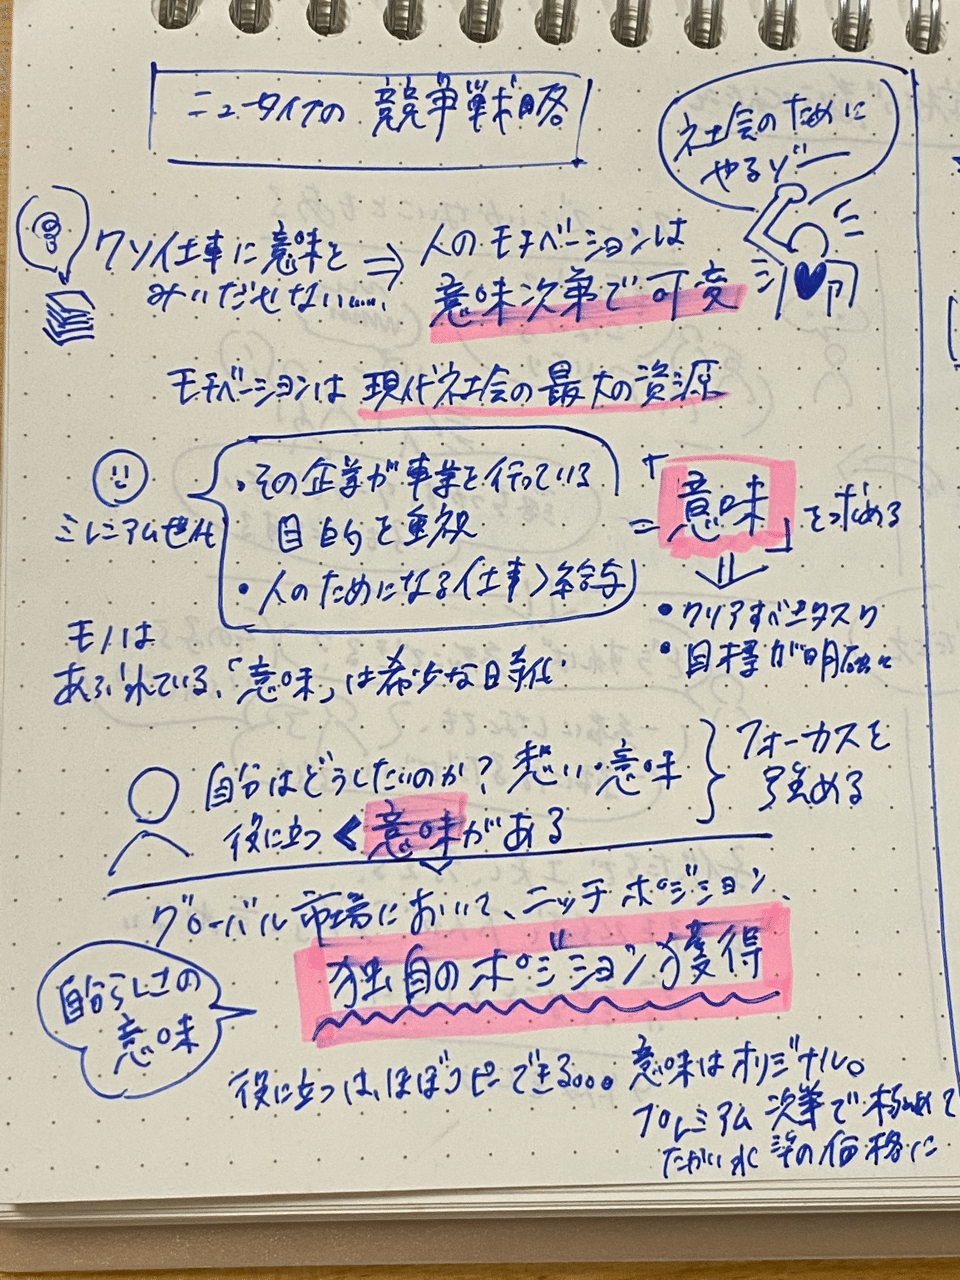 ニュータイプの 競争戦略
社会のために
やるゾー
クソ仕事に意味を
みいだせない……
⇒
人のモチベーションは
意味次第で可変
モチベーションは 現代社会の最大の資源
ミレニアム世代
・その企業が事業を行っている
目的を重視
・人のためになる仕事>給与
=「意味」を求める
・クリアすべきタスク
・目標が明確に
モノは
あふれている、「意味」は希少な時代
自分はどうしたいのか? 想い・意味
役に立つ < 意味がある
フォーカスを
強める
グローバル市場において、ニッチポジション、
独自のポジション獲得
自分らしさの
意味
役に立つは、ほぼコピーできる。。。
意味はオリジナル。
プレミアム 次第で極めて
たかい水準の価格に